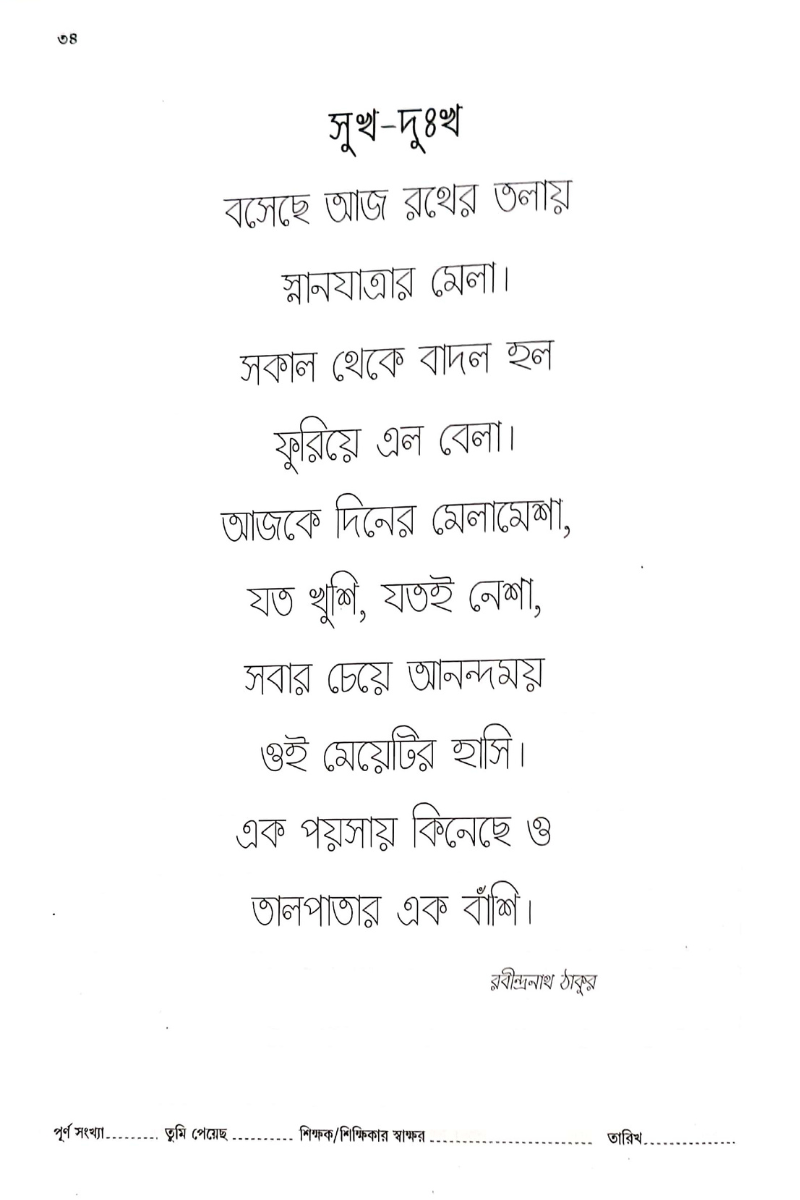 ৩৪
সুখ-দুঃখ
বসেছে আজ রথের তলায়
স্নানযাত্রার মেলা।
সকাল থেকে বাদল হল
ফুরিয়ে এল বেলা।
আজকে দিনের মেলামেশা,
যত খুশি, যতই নেশা,
সবার চেয়ে আনন্দময়
ওই মেয়েটির হাসি।
এক পয়সায় কিনেছে ও
তালপাতার এক বাঁশি।
রবীন্দ্রনাথ ঠাকুর
পূর্ণ সংখ্যা......... তুমি পেয়েছ .......... শিক্ষক/শিক্ষিকার স্বাক্ষর ........................... তারিখ...............